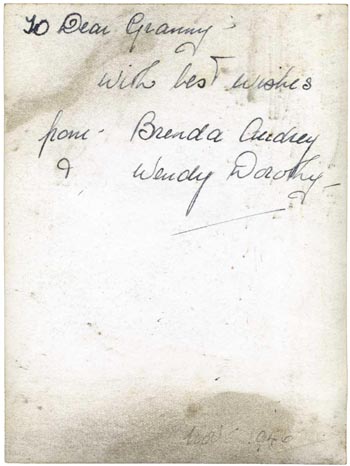 To Dear Granny:
With best wishes
from- Brenda Audrey
& Wendy Dorothy-